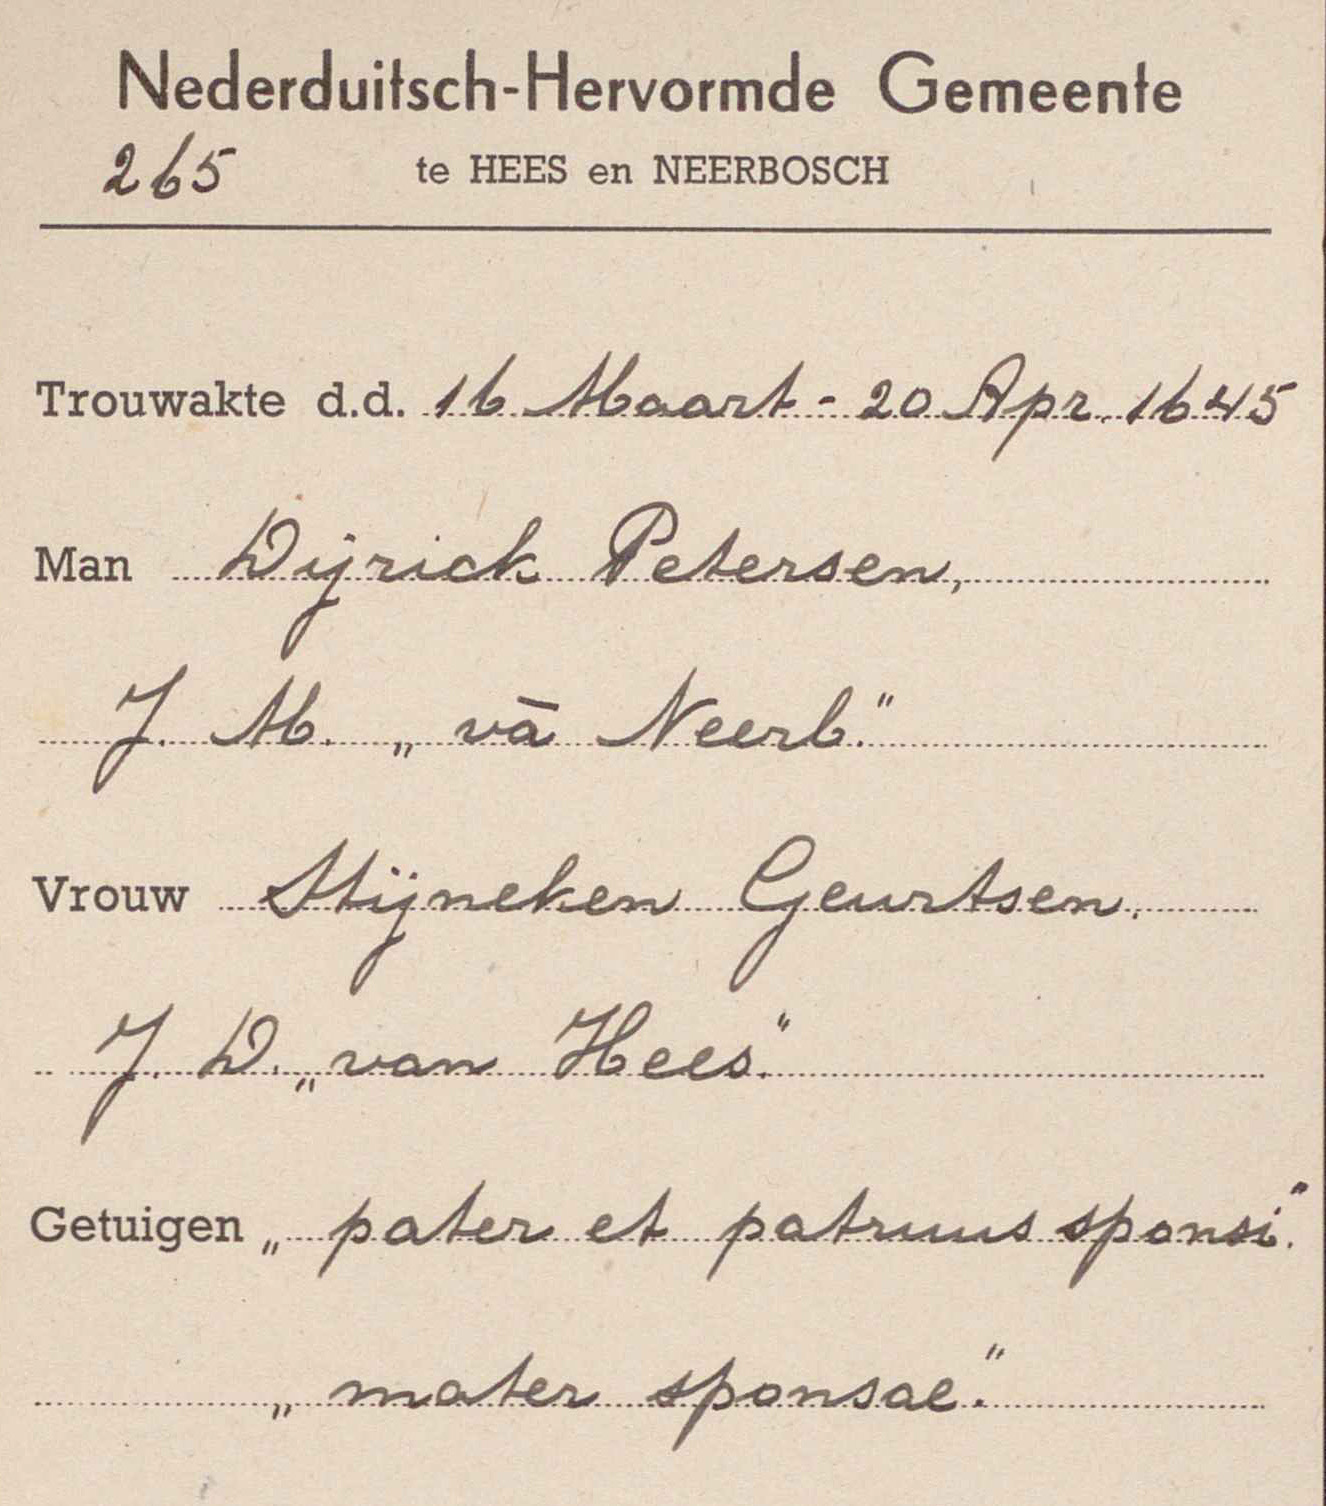 Nederduitsch-Hervormde Gemeente
265 te HEES en NEERBOSCH
Trouwakte d.d. 16 Maart - 20 Apr. 1645
Man Dijrick Petersen,
J. M. „ vā Neerb.”
Vrouw Stijneken Geurtsen.
J. D. „ van Hees.”
Getuigen „ pater et patruus sponsi.”
„ mater sponsae.”